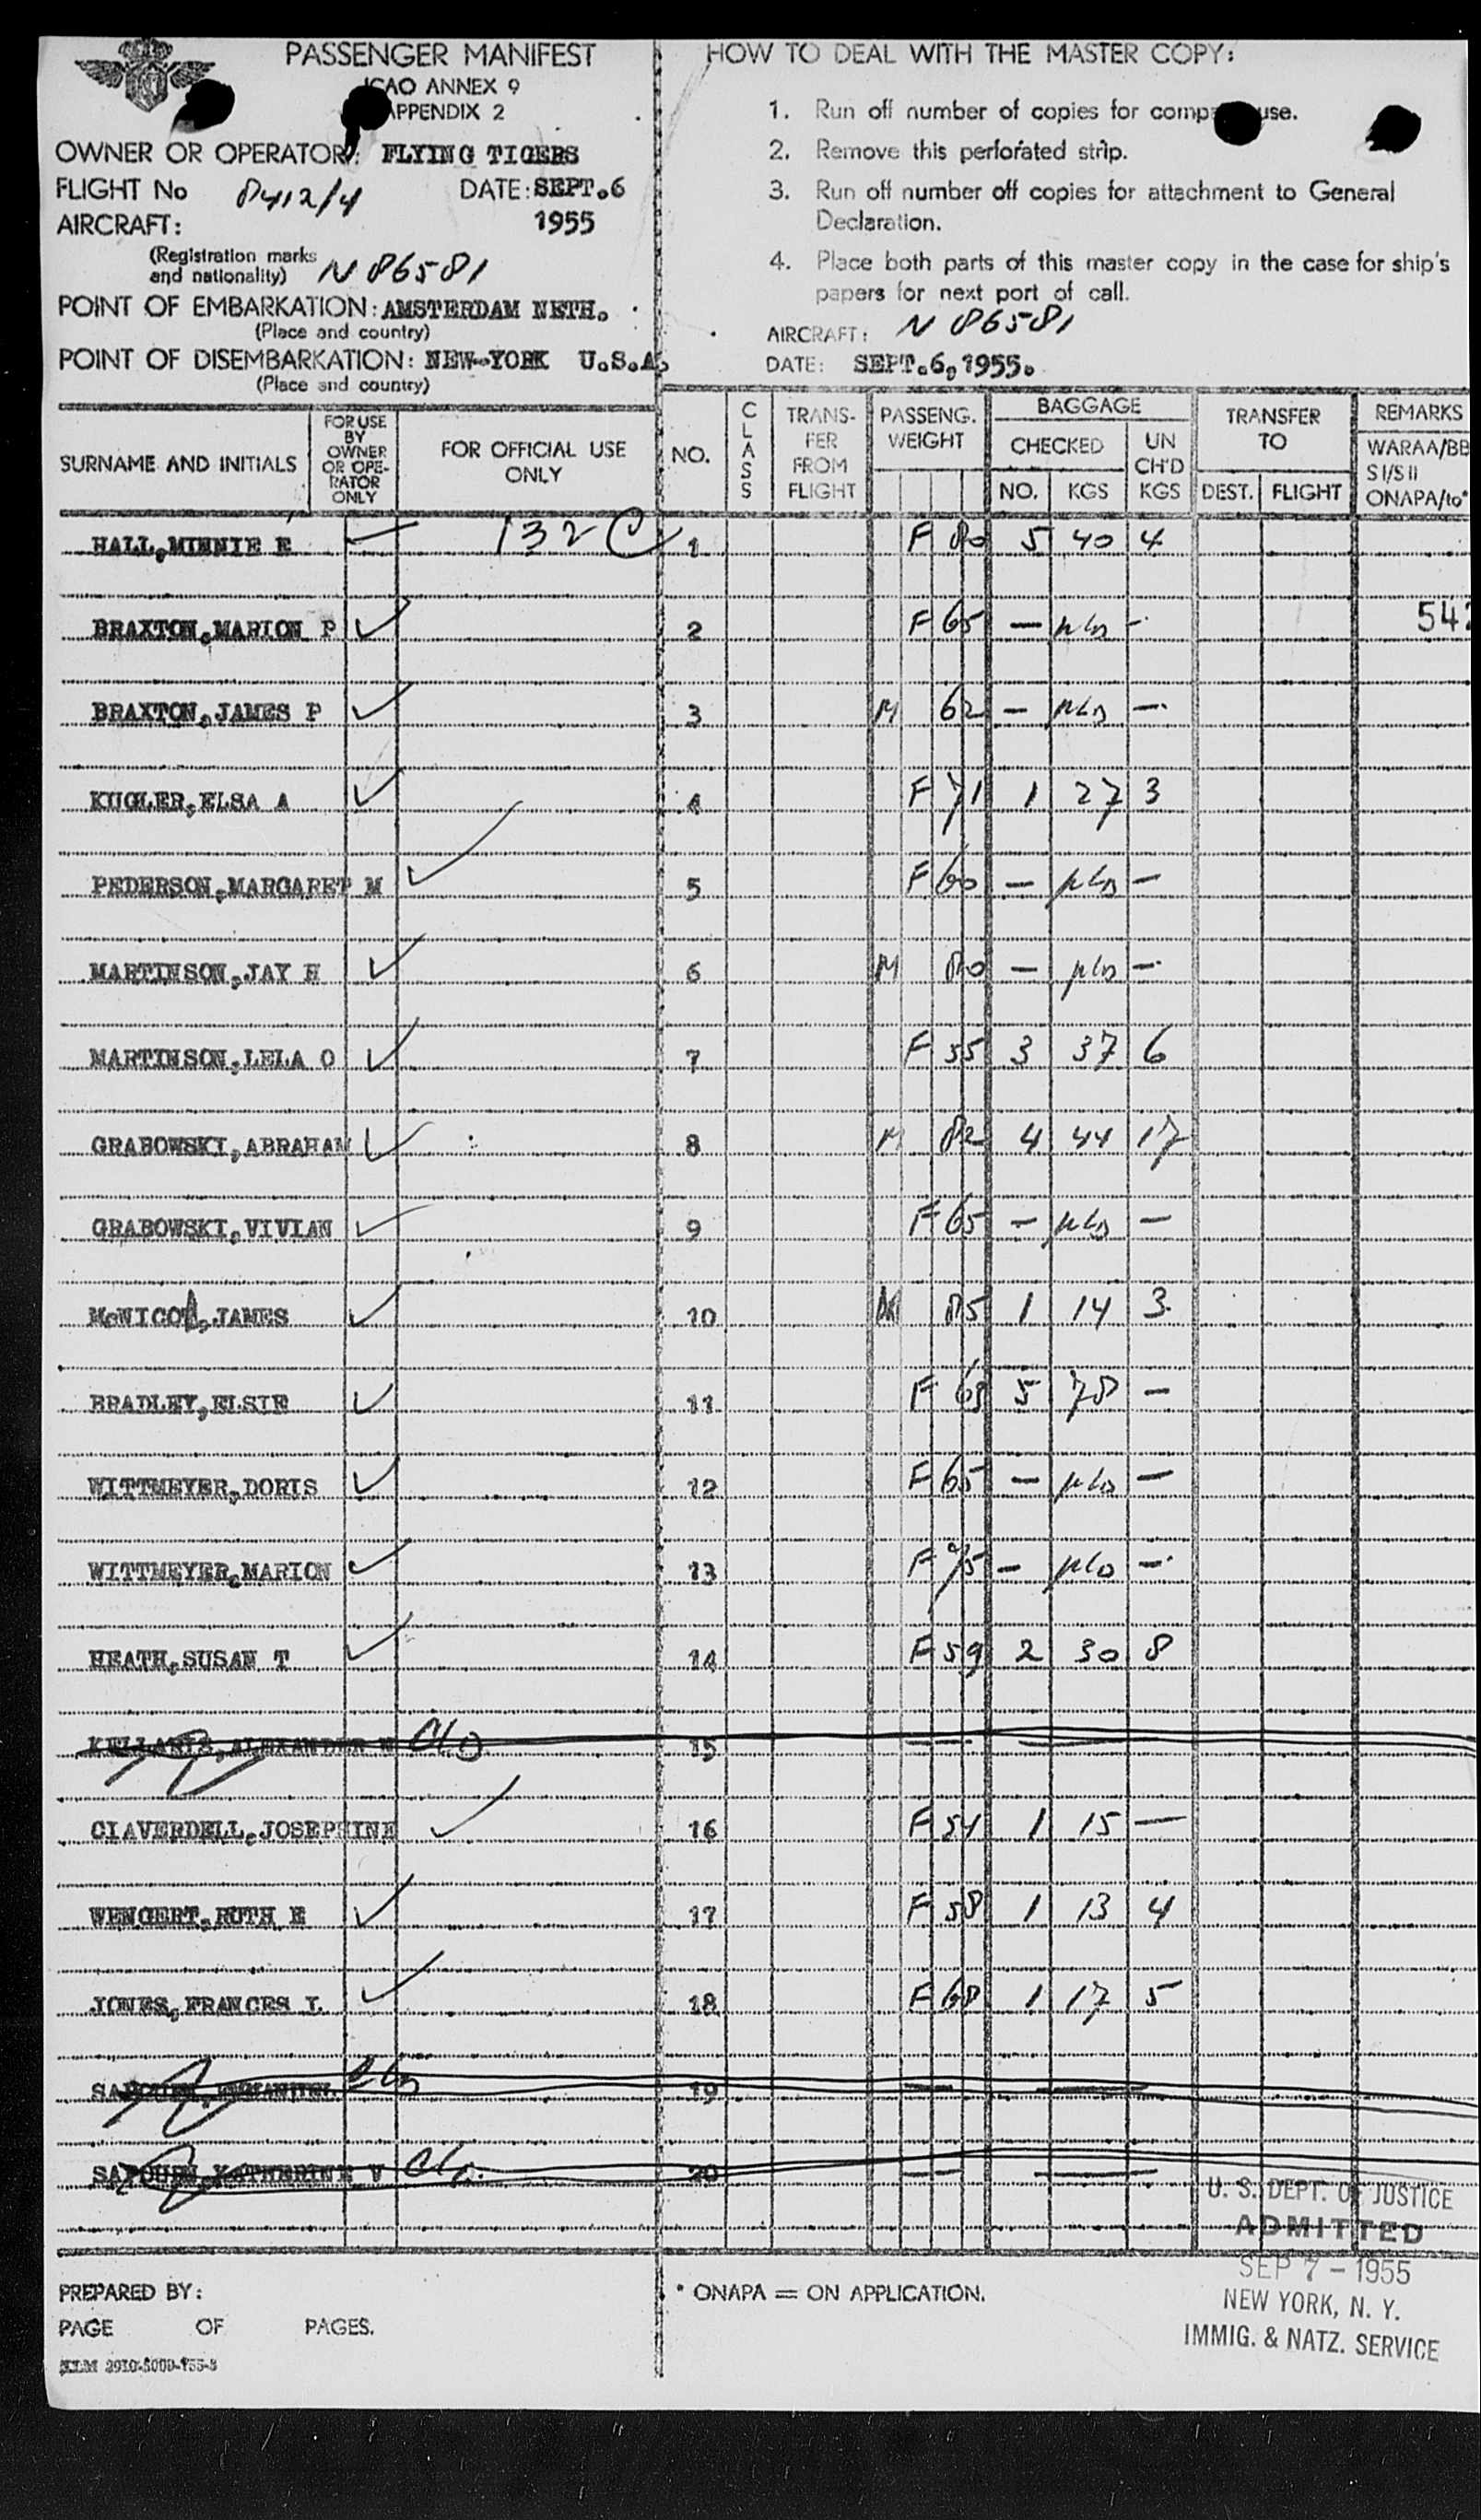 PASSENGER MANIFEST
ICAO ANNEX 9
APPENDIX 2
OWNER OR OPERATOR: FLYING TIGERS
FLIGHT No 8412/4 DATE: SEPT.6
AIRCRAFT: 1955
(Registration marks
and nationality) N 86581
POINT OF EMBARKATION: AMSTERDAM NETH.
(Place and country)
POINT OF DISEMBARKATION: NEW-YORK U.S.A.
(Place and country)
HOW TO DEAL WITH THE MASTER COPY:
1. Run off number of copies for use.
2. Remove this perforated strip.
3. Run off number off copies for attachment to General
Declaration.
4. Place both parts of this master copy in the case for ship's
papers for next port of call.
AIRCRAFT: N 86581
DATE: SEPT.6,1955.
SURNAME AND INITIALS
FOR USE
BY
OWNER
OR OPE-
RATOR
ONLY
FOR OFFICIAL USE
ONLY
NO.
CLASS
TRANS-
FER
FROM
FLIGHT
PASSENG.
WEIGHT
BAGGAGE
CHECKED
NO. KGS
UN
CH'D
KGS
TRANSFER
TO
DEST. FLIGHT
REMARKS
WARAA/BB
S I/S II
ONAPA/to*
HALL,MINNIE E 132 C 1 F 80 5 40 4
BRAXTON,MARION P 2 F 65 — — 542
BRAXTON,JAMES P 3 M 62 — —
KUGLER,ELSA A 4 F 71 1 27 3
PEDERSON,MARGARET M 5 F 60 — —
MARTINSON,JAY H 6 M 80 — —
MARTINSON,LELA O 7 F 55 3 37 6
GRABOWSKI,ABRAHAM 8 M 82 4 44 17
GRABOWSKI,VIVIAN 9 F 65 — —
McNICOL,JAMES 10 M 85 1 14 3
BRADLEY,ELSIE 11 F 69 5 78 —
WITTMEYER,DORIS 12 F 65 — —
WITTMEYER,MARION 13 F 75 — —
HEATH,SUSAN T 14 F 59 2 30 8
ALEXANDER 15 — —
CIAVERDELL,JOSEPHINE 16 F 54 1 15 —
WENGERT,RUTH E 17 F 58 1 13 4
JONES,FRANCES L 18 F 68 1 17 5
19 — —
KATHERINE V 20 — —
U. S. DEPT. OF JUSTICE
ADMITTED
SEP 7 - 1955
NEW YORK, N. Y.
IMMIG. & NATZ. SERVICE
PREPARED BY:
PAGE OF PAGES.
* ONAPA = ON APPLICATION.